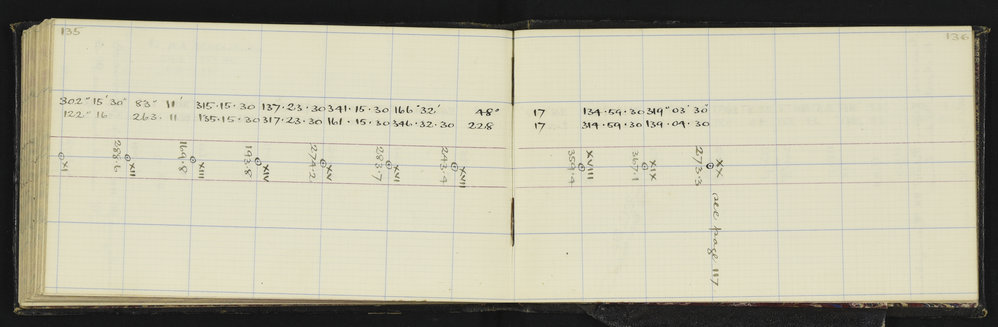 135
302° 15' 30" 83° 11' 315.15.30 137.23.30 341.15.30 166°32' 48°
122° 16 263. 11 135.15.30 317.23.30 161.15.30 346.32.30 228
XI
288.6 XII
169.8 XIII
193.8 XIV
274.2 XV
283.7 XVI
243.4 XVII
136
17 134.59.30 319° 03' 30"
17 314.59.30 139.04.30
359.4 XVIII
367.1 XIX
273.3 XX see page 117